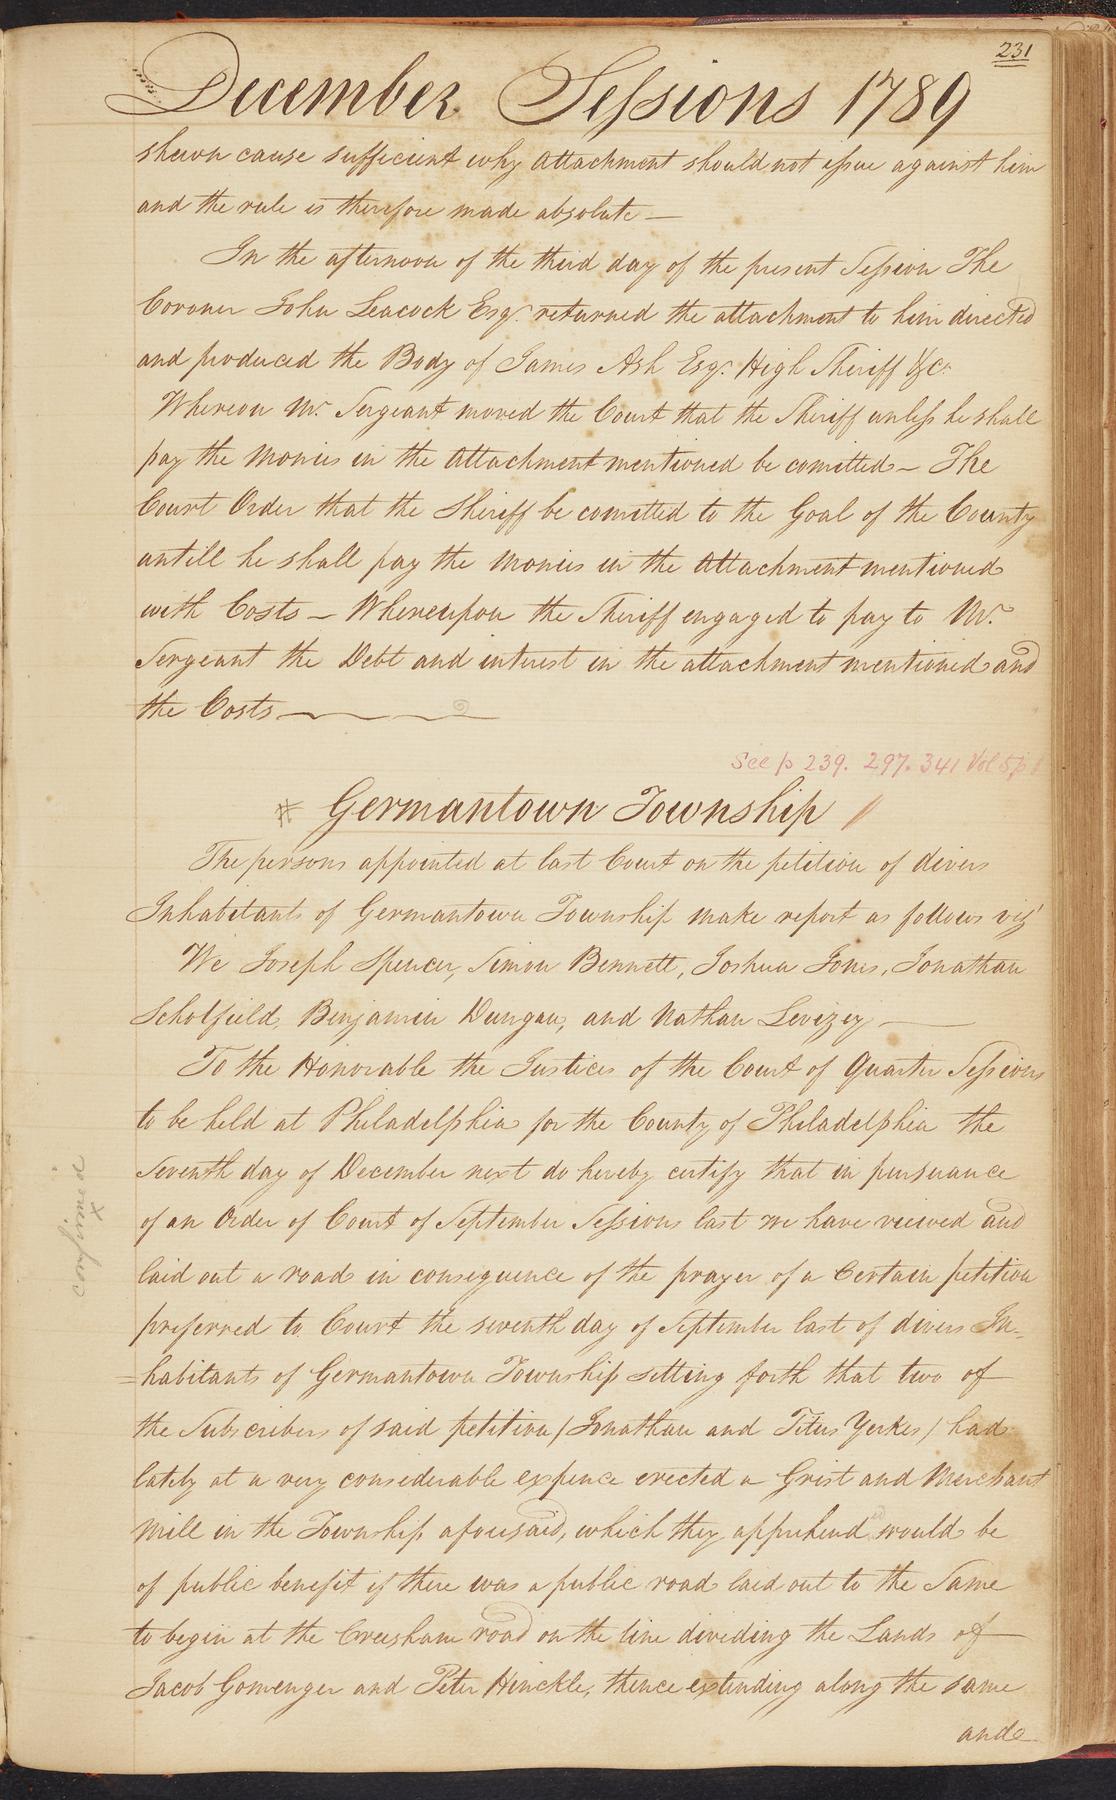 231
December Sessions 1789
shewn cause sufficient why Attachment should not issue against him
and the rule is therefore made absolute —
In the afternoon of the third day of the present Session The
Coroner John Leacock Esqr. returned the attachment to him directed
and produced the Body of James Ash Esqr. High Sheriff &c.
Whereon Mr. Sergeant moved the Court that the Sheriff unless he shall
pay the Monies in the Attachment mentioned be comitted — The
Court Order that the Sheriff be comitted to the Goal of the County
untill he shall pay the Monies in the Attachment mentioned
with Costs — Whereupon the Sheriff engaged to pay to Mr.
Sergeant the Debt and interest in the attachment mentioned and
the Costs —
See p 239. 297. 341 Vol 5 p 1
# Germantown Township //
The persons appointed at last Court on the petition of divers
Inhabitants of Germantown Township make report as follows vizt
We Joseph Spencer, Simon Bennett, Joshua Jones, Jonathan
Scholfield, Benjamin Dungan, and Nathan Levizey —
To the Honorable the Justices of the Court of Quarter Sessions
to be held at Philadelphia for the County of Philadelphia the
Seventh day of December next do hereby certify that in pursuance
of an Order of Court of September Sessions last we have viewed and
laid out a road in consequence of the prayer of a Certain petition
confirmed
x
preferred to Court the seventh day of September last of divers In-
=habitants of Germantown Township setting forth that two of
the Subscribers of said petition / Jonathan and Titus Yerkes / had
lately at a very considerable expence erected a Grist and Merchant
Mill in the Township aforesaid, which they apprehend would be
of public benefit if there was a public road laid out to the Same
to begin at the Creesham road on the line dividing the Lands of
Jacob Gomenger and Peter Hinckle, thence extending along the same
and